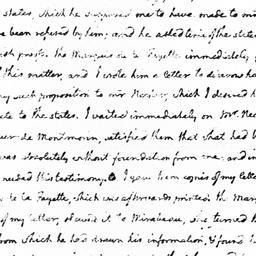 states, which he supposed me to have made to mr
been refused by him; and he asked leave of the states
The Marquis de la Fayette immediately
this matter, and I wrote him a letter to disavow ha
such proposition to mr Necker, which I desired h
te to the states. I waited immediately on Mr. Nec
de Montmorin, satisfied them that what had b
was absolutely without foundation from me, and in
this testimony. I gave them copies of my lette
la Fayette, which was afterwards printed. the Mar
of my letter, of it to Mirabeau, who turned t
from which he had drawn his information, & found